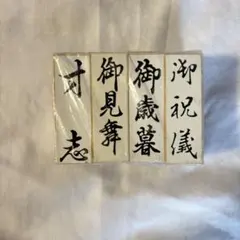 御祝儀
御歳暮
御見舞
寸志